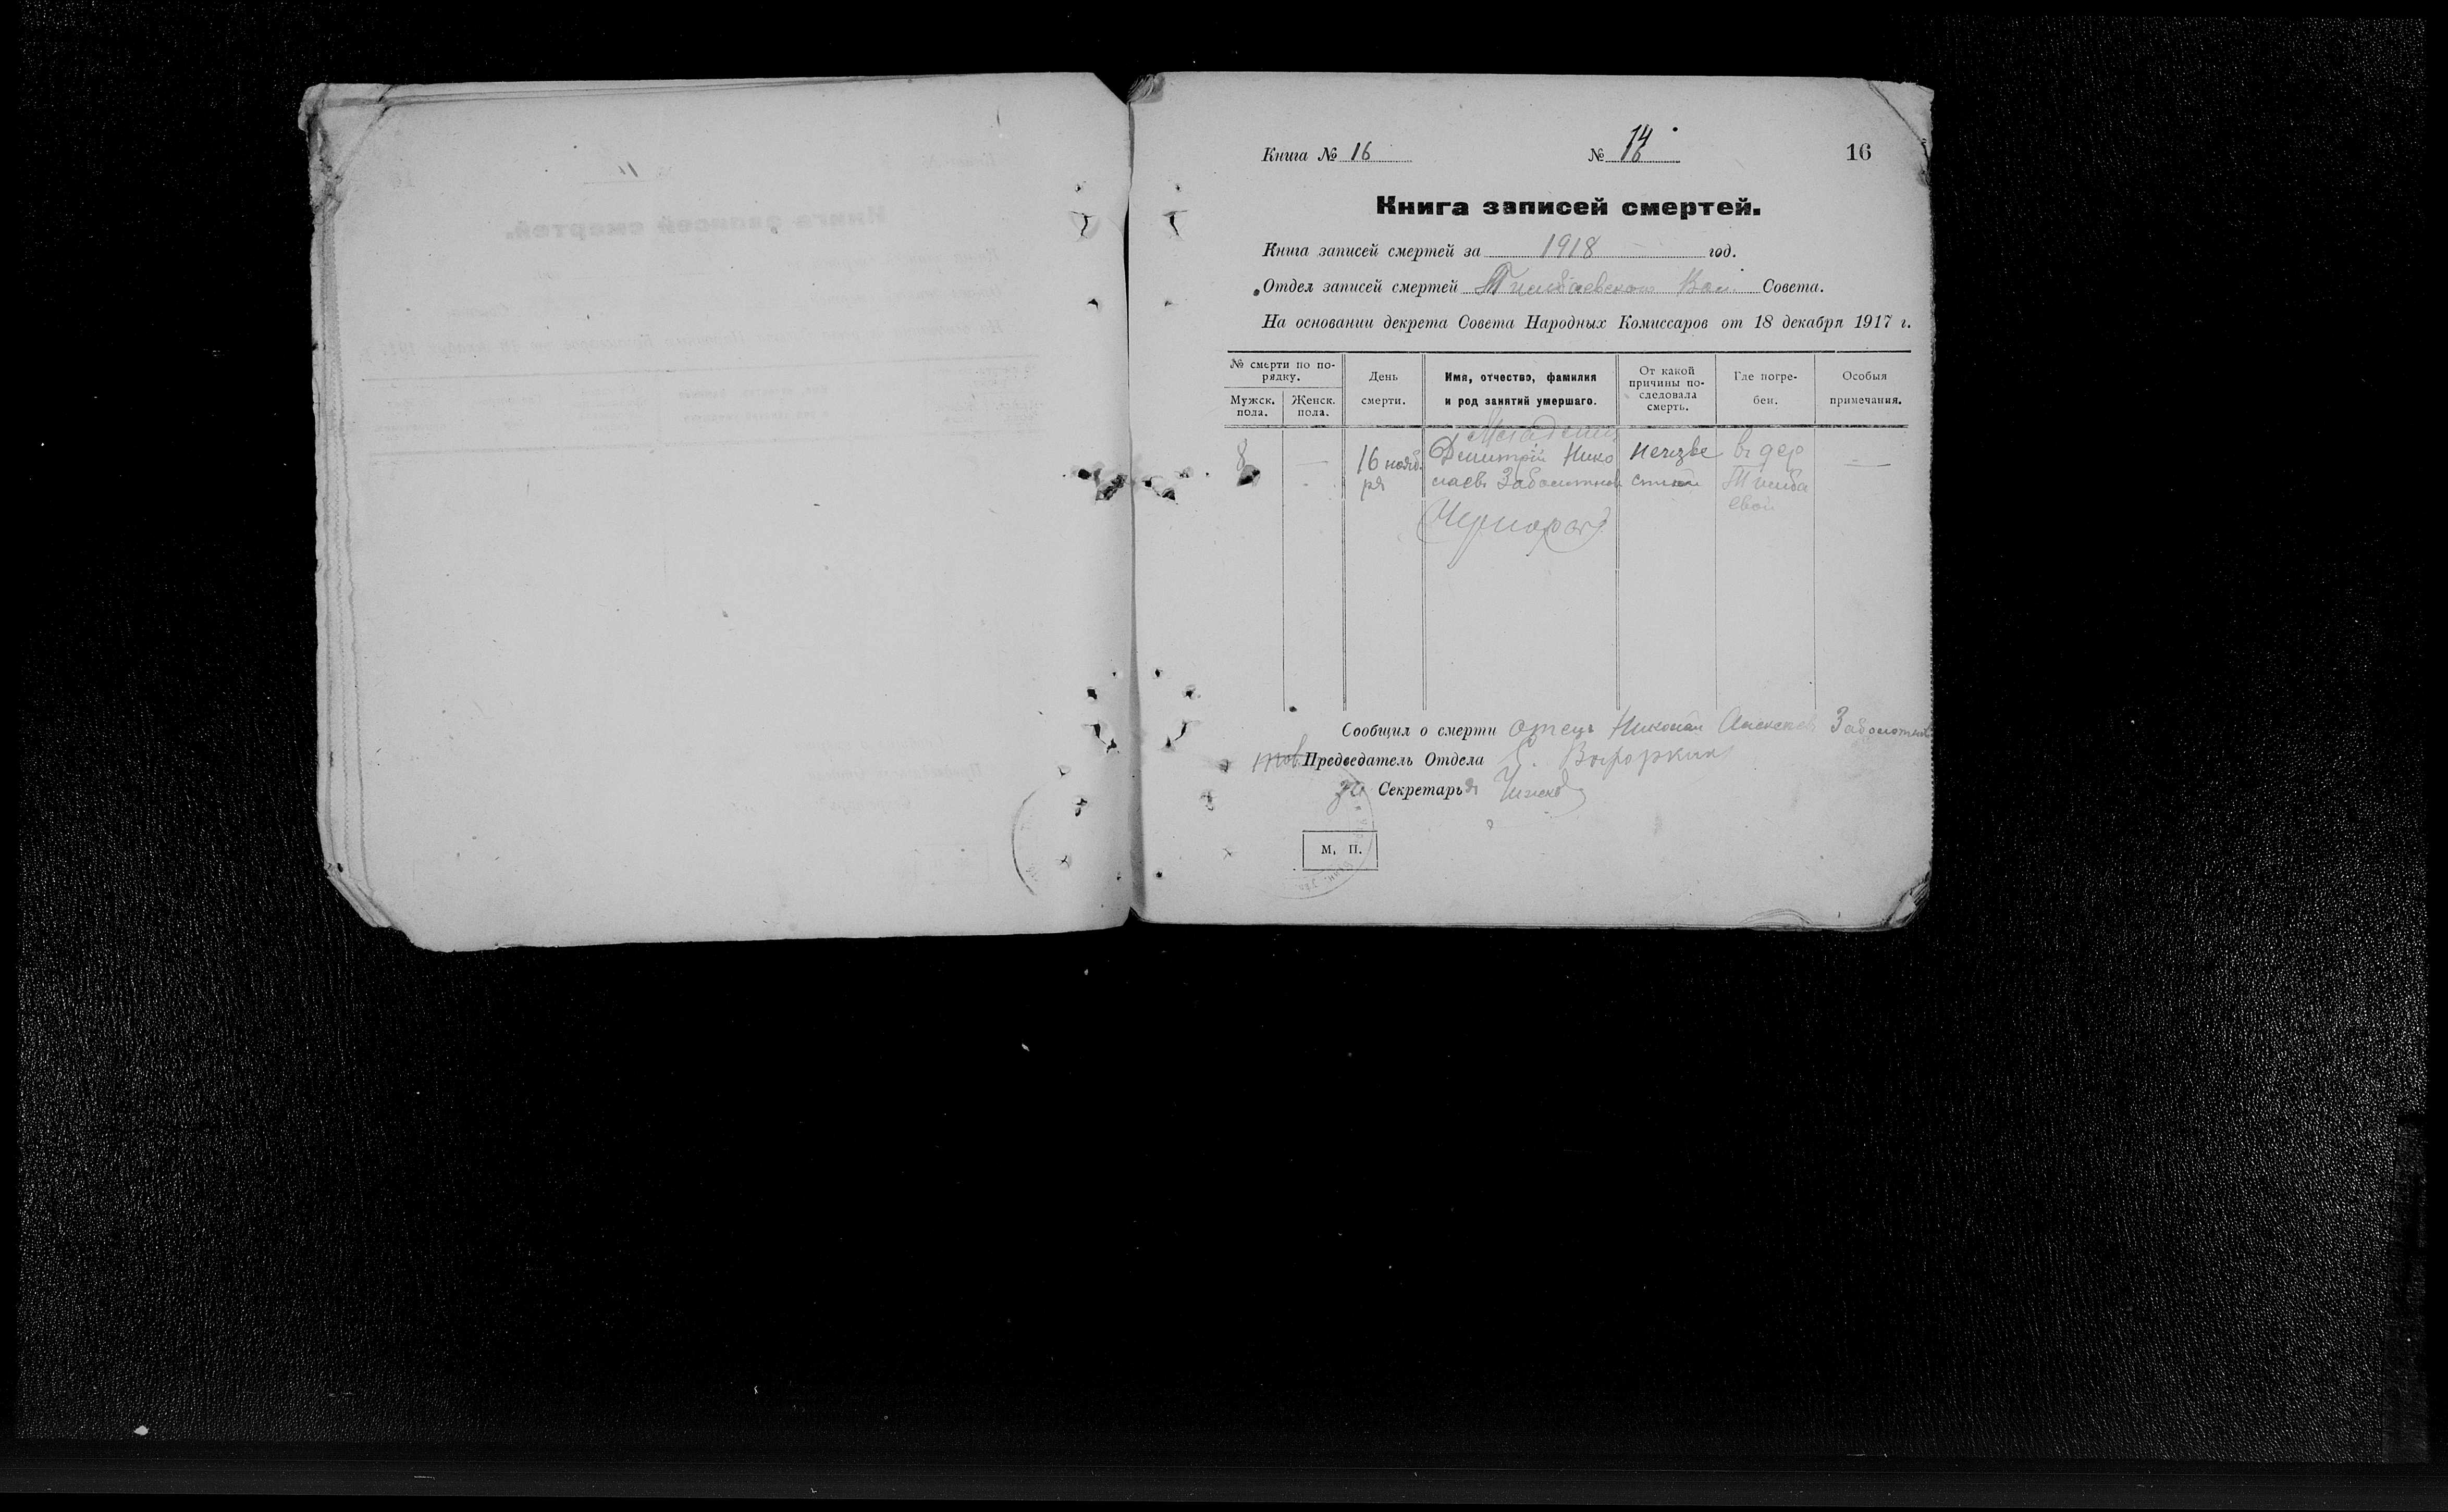 Книга № 16 № 14 16
Книга записей смертей.
Книга записей смертей за 1918 год.
Отдел записей смертей Тимбаевского Вол. Совета.
На основании декрета Совета Народных Комиссаров от 18 декабря 1917 г.
№ смерти по порядку.
Мужск. пола.
Женск. пола.
День смерти.
Имя, отчество, фамилия и род занятий умершаго.
От какой причины последовала смерть.
Где погребен.
Особыя примечания.
8 —
16 ноября
Младенец
Димитрий Нико
лаев Заболотнов
неизве
стной
в дер
Тимба
евой
—
Сообщил о смерти отец Николай Алексеев Заболотнов
Председатель Отдела
за Секретаря
М. П.